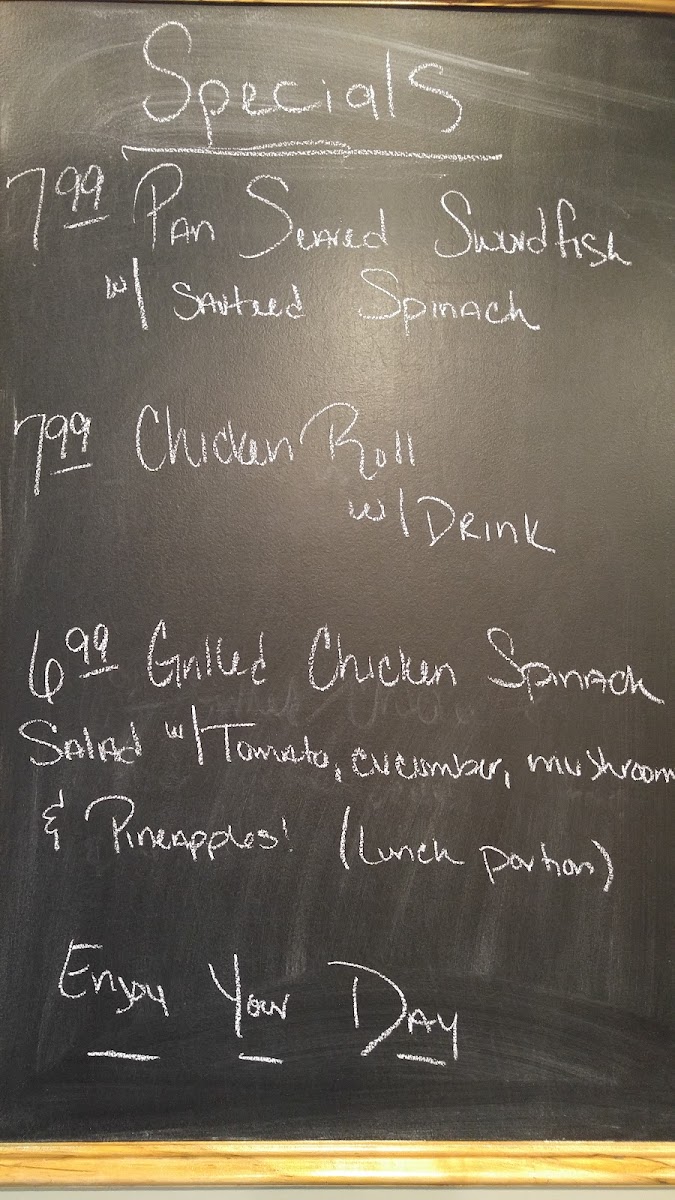 Specials
7.99 Pan Seared Swordfish
w/ Sauteed Spinach
7.99 Chicken Roll
w/ Drink
6.99 Grilled Chicken Spinach
Salad w/ Tomato, cucumber, mushroom
& Pineapples! (lunch portion)
Enjoy Your Day